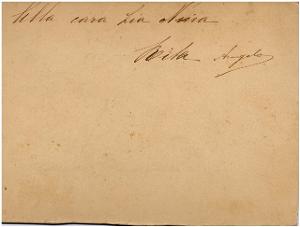 Alla cara Zia Nina
Rita Angelo